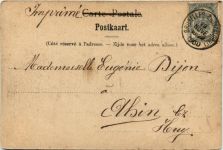 Imprimé Carte Postale.
Postkaart.
(Côté réservé à l'adresse. — Zijde voor het adres alleen.)
Mademoiselle Eugénie Dijon
à
Ahin lez
Huy.